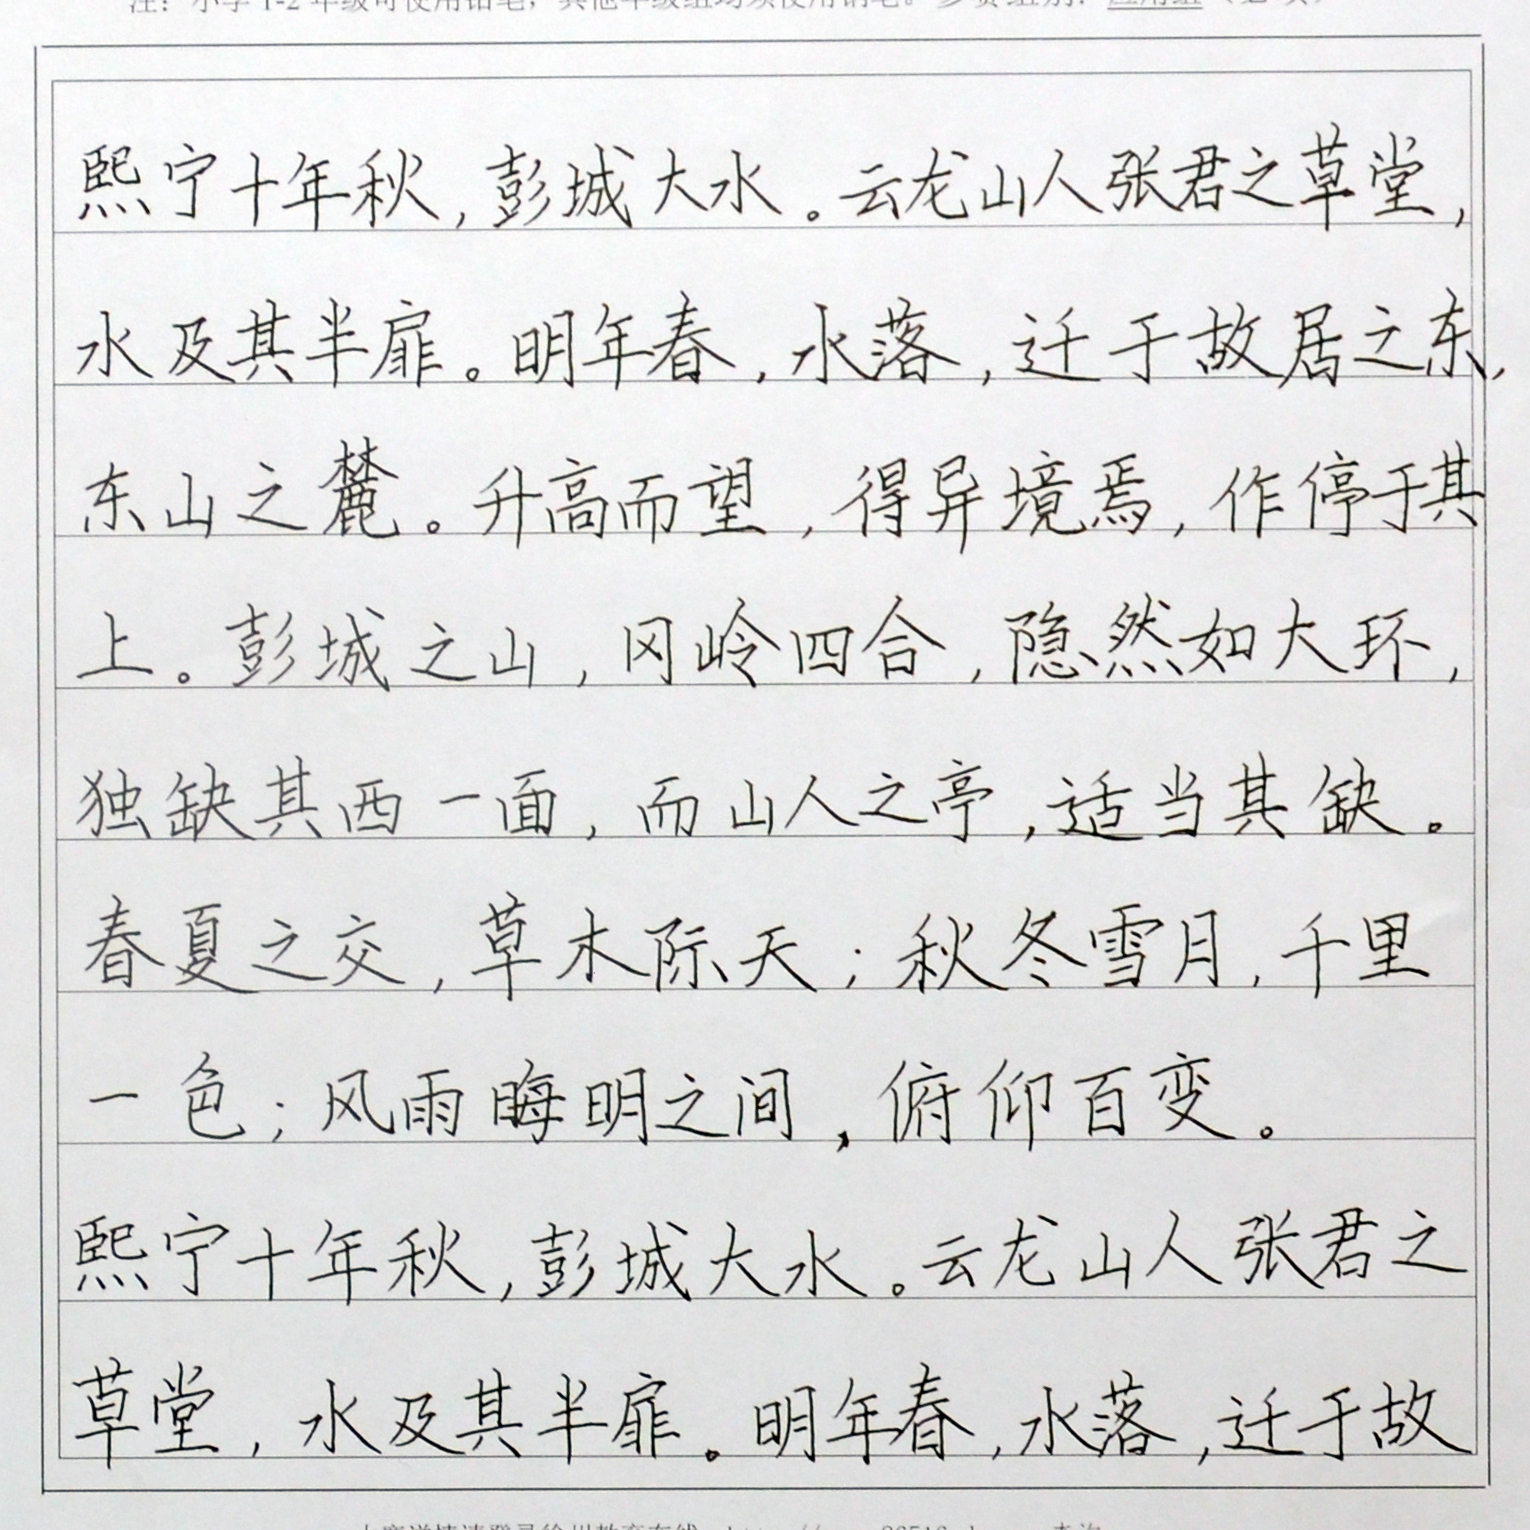 熙宁十年秋,彭城大水。云龙山人张君之草堂,
水及其半扉。明年春,水落,迁于故居之东,
东山之麓。升高而望,得异境焉,作停于其
上。彭城之山,冈岭四合,隐然如大环,
独缺其西一面,而山人之亭,适当其缺。
春夏之交,草木际天;秋冬雪月,千里
一色;风雨晦明之间,俯仰百变。
熙宁十年秋,彭城大水。云龙山人张君之
草堂,水及其半扉。明年春,水落,迁于故